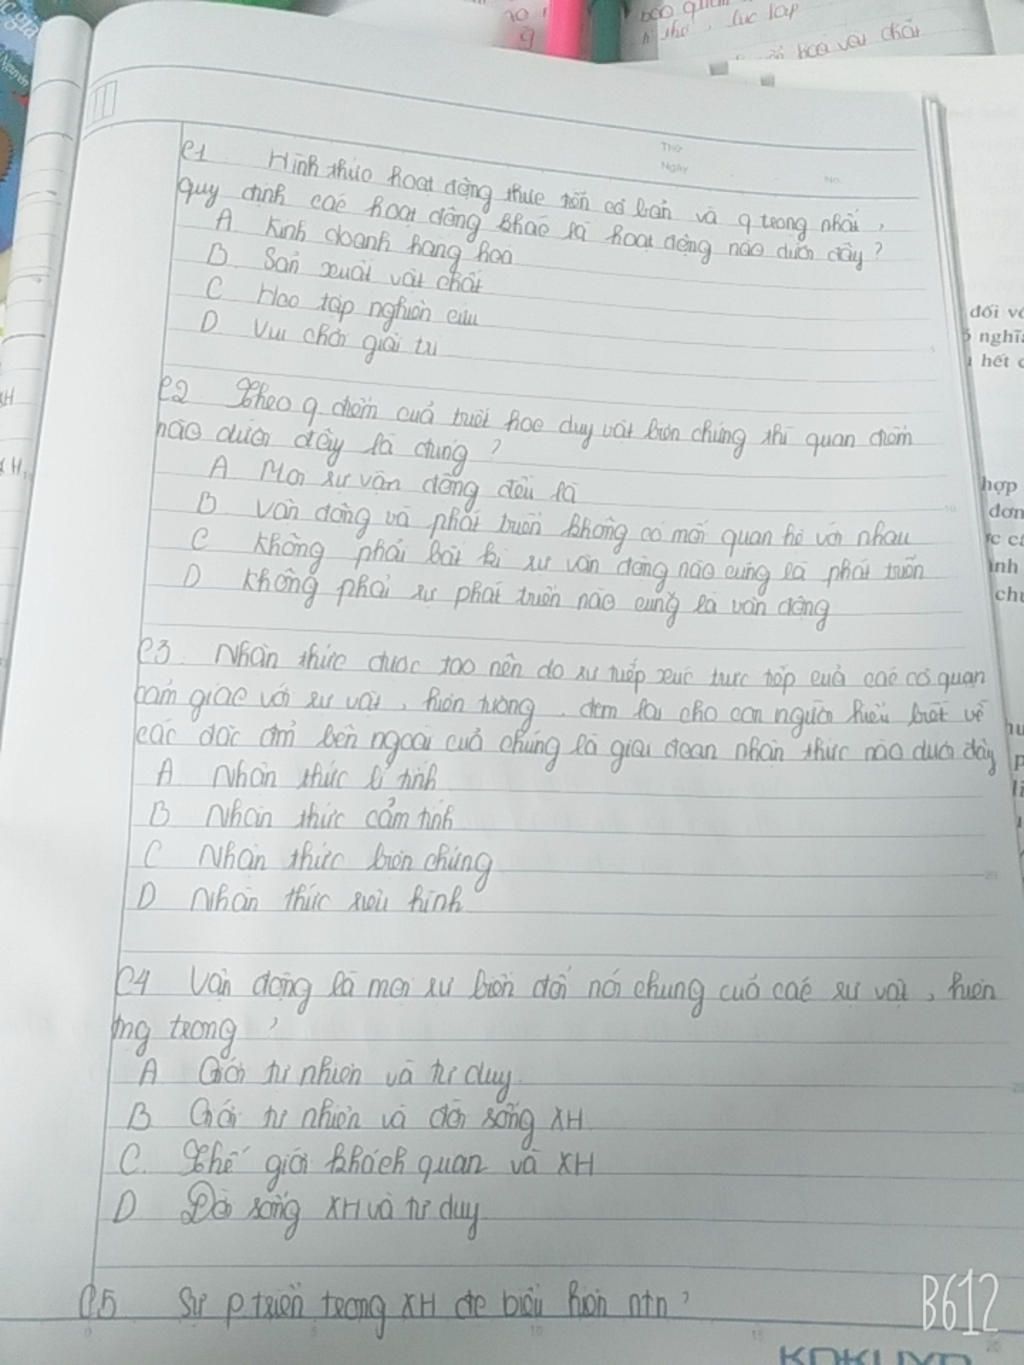 bao qu
thơ, lục lạp
hoa vai chất
Thứ
Ngày
No.
C1 Hình thức hoạt động thực tiễn cơ bản và q trong nhất,
quy định các hoạt động khác là hoạt động nào dưới đây?
A Kinh doanh hàng hoá
B Sản xuất vật chất
C Học tập nghiên cứu
D Vui chơi giải trí
C2 Theo q. điểm của triết học duy vật biện chứng thì quan điểm
nào dưới đây là đúng?
A Mọi sự vận động đều là
B Vận động và phát triển không có mối quan hệ với nhau
C Không phải bất kì sự vận động nào cũng là phát triển
D Không phải sự phát triển nào cũng là vận động
C3. Nhận thức được tạo nên do sự tiếp xúc trực tiếp của các cơ quan
cảm giác với sự vật, hiện tượng, đem lại cho con người hiểu biết về
các đặc đm bên ngoài của chúng là giai đoạn nhận thức nào dưới đây
A Nhận thức lí tính
B Nhận thức cảm tính
C Nhận thức biện chứng
D Nhận thức siêu hình
C4 Vận động là mọi sự biến đổi nói chung của các sự vật, hiện
tng trong?
A Giới tự nhiên và tư duy.
B Giới tự nhiên và đời sống XH
C. Thế giới khách quan và XH
D Đời sống XH và tư duy
C5 Sự p.triển trong XH đc biểu hiện ntn?
đối
nghĩ
hết
hợp
đơn
B612
KOKUYO